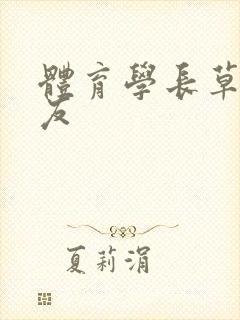 體育學長草
友
夏莉涓